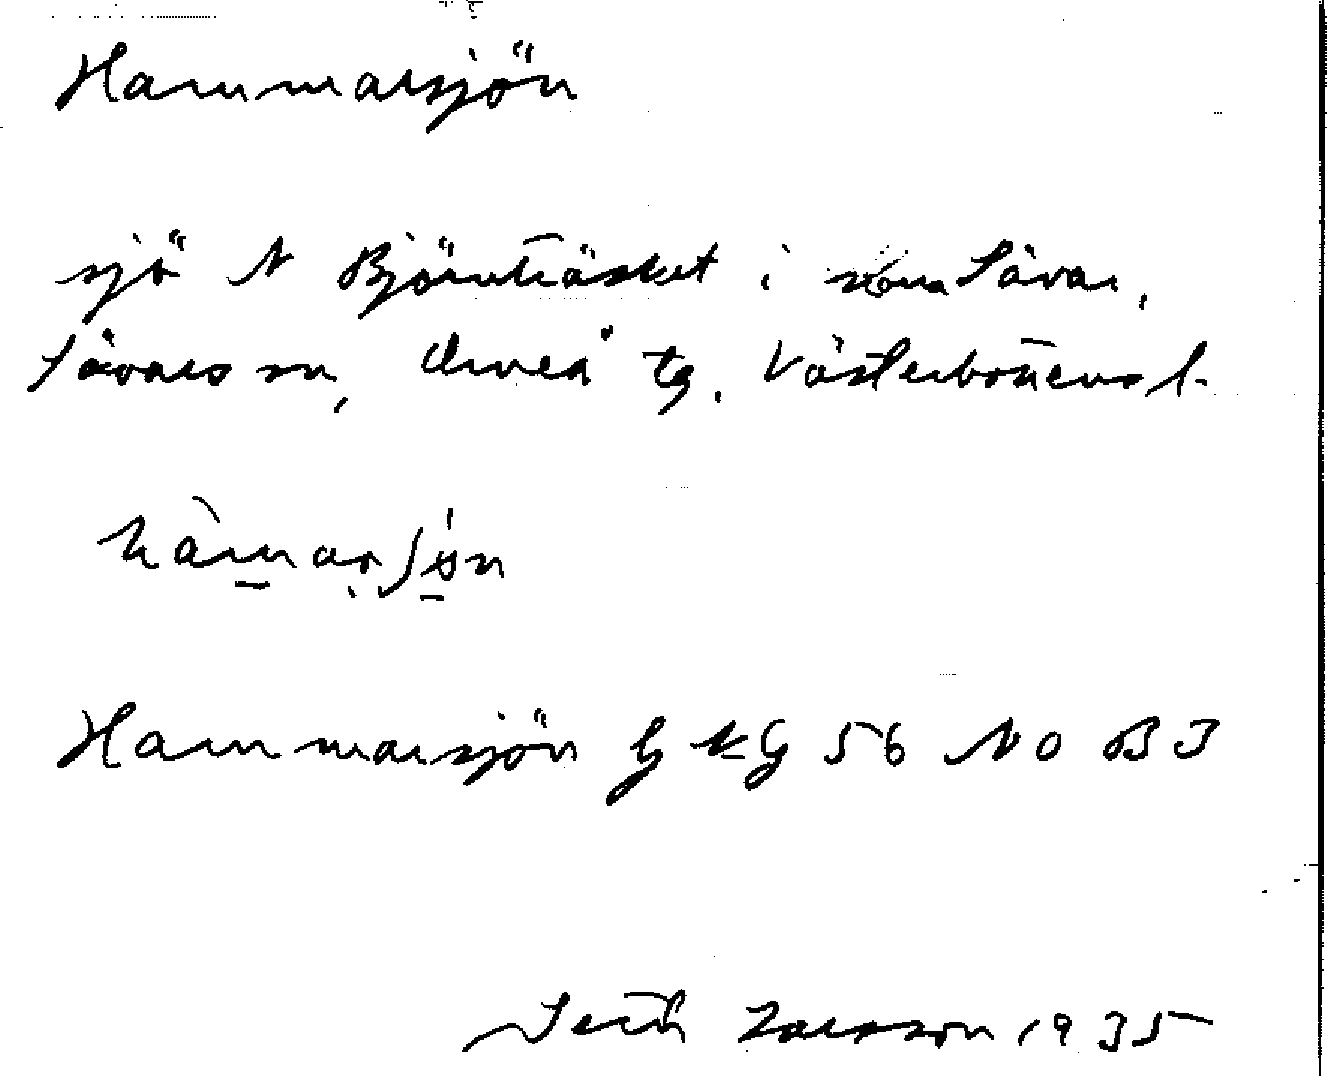 Hammarsjön
sjö N Björnträsket i norra Sävar,
Sävars sn, Umeå tg. Västerbottens l.
Hammarsjön G KG 56 NO B3
Seth Larsson 1935